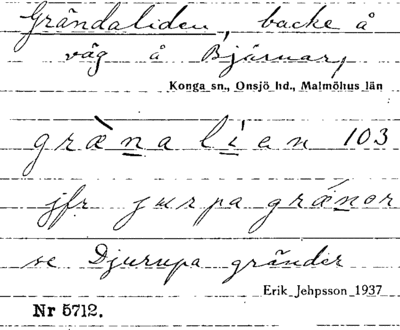 Grändaliden, backe å
väg å Bjärnar,
Konga sn., Onsjö hd., Malmöhus län
græ̀nalíen 103
jfr jurpa grǽnor
se Djurupa gränder
Erik Jehpsson 1937
Nr 5712.